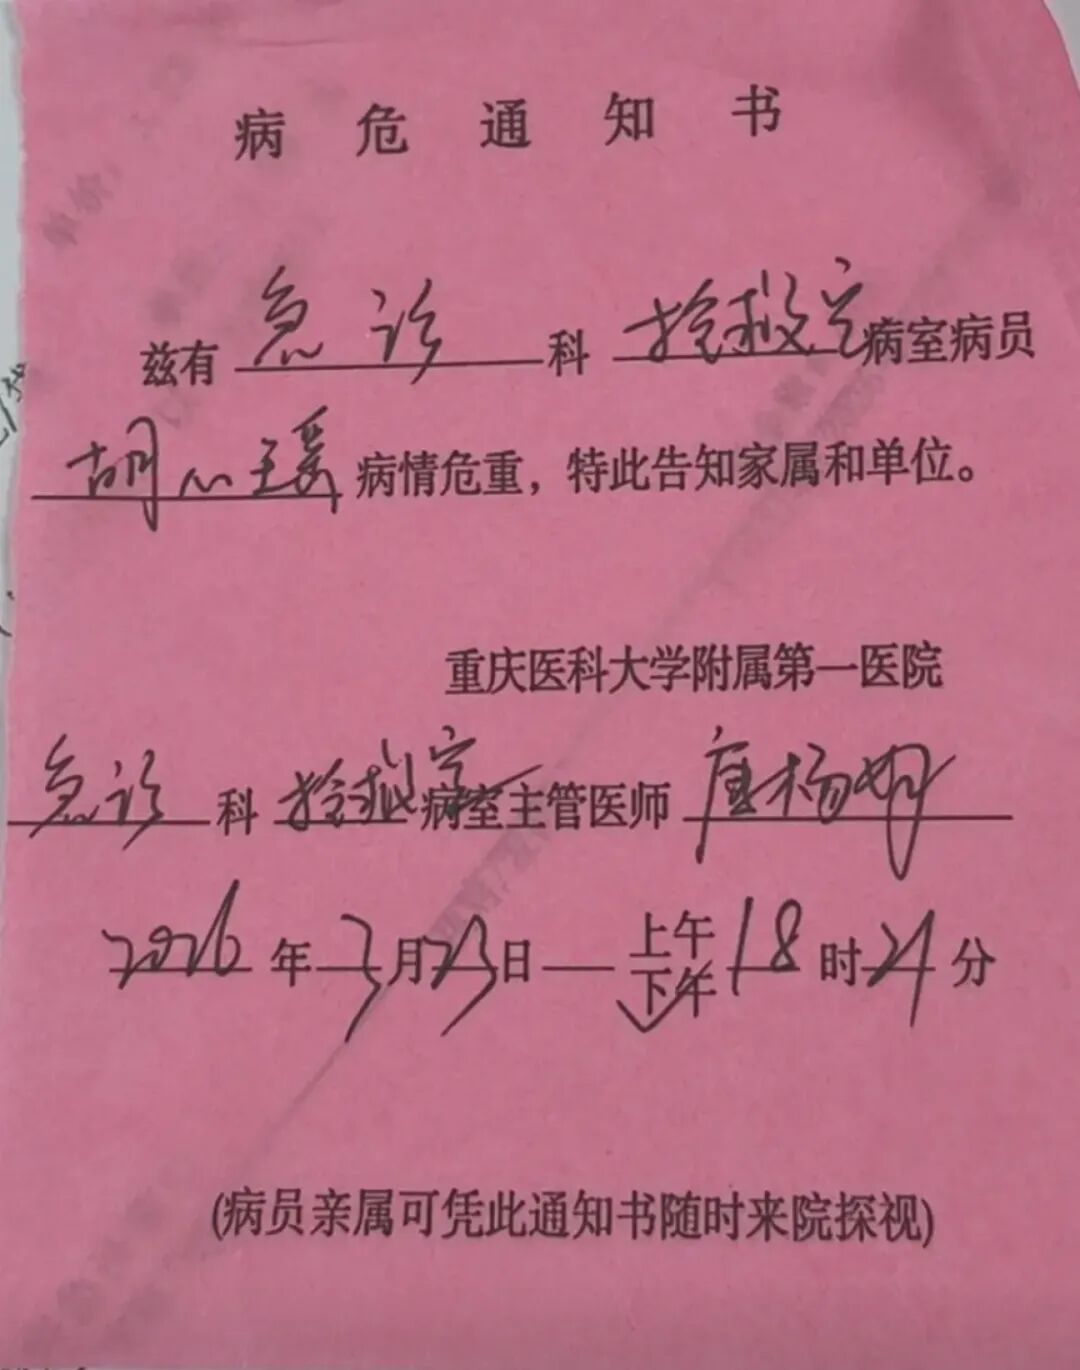 病危通知书
兹有 急诊 科 抢救室 病室病员
胡心瑗 病情危重，特此告知家属和单位。
重庆医科大学附属第一医院
急诊 科 抢救室 病室主管医师 唐杨
2026 年 3 月 23 日 上午 下午 18 时 21 分
(病员亲属可凭此通知书随时来院探视)